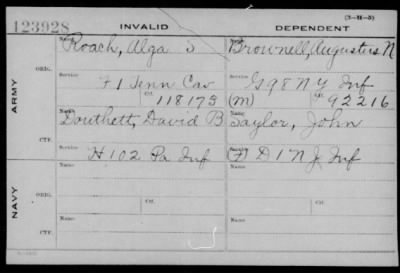 123928 INVALID DEPENDENT (3-H-5)
Name Name
Roach, Alga S Brownell, Augustus N
ORIG.
Service Service
F 1 Tenn Cav G 98 N Y Inf
Ctf. 118173 (M) Ctf. 92216
ARMY
Name Name
Douthett, David B Taylor, John
CTF.
Service Service
H 102 Pa Inf (F) D 1 N J Inf
Name Ctf. Name Ctf.
ORIG.
NAVY
Name Name
CTF.